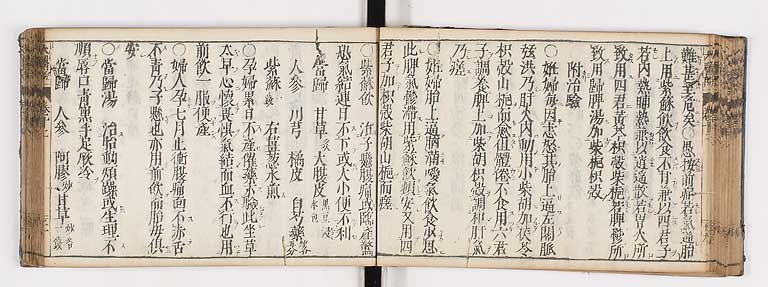 難甚至危矣〇愚按前症若氣逼胎
上用紫蘇飲飲食不甘兼以四君子
若內熱晡熱兼以逍遥散若胃火所
致用四君黄芩枳殻柴梔若脾鬱所
致用歸脾湯加柴梔枳殻
附治驗
〇一妊婦每因忿怒其胎上逼左關脈
弦洪乃肝火内動用小柴胡加茯苓
枳殻山梔而愈但體倦不食用六君
子調養脾土加柴胡枳殻調和肝氣
乃瘥
〇一妊婦胎上逼胸滿噯氣飲食少思
此脾氣鬱滯用紫蘇飲頓安又用四
君子加枳殻柴胡山梔而痊
〇紫蘇飲 治子懸腹痛或臨產驚
恐氣結連日不下或大小便不利
當歸 甘草 大腹皮 黑豆浸 水泡
人參 川芎 橘皮 白芍藥
紫蘇 右薑葱水煎
〇一孕婦累日不產催藥不驗此坐草
太早心懷畏懼氣結而血不行也用
前飲一服便產
〇一婦人孕七月上衝腹痛面不赤舌
不青乃子懸也亦用前飲而胎母俱
安
〇當歸湯 治胎動煩躁或生理不
順唇口青黑手足厥冷
當歸 人參 阿膠 炒 甘草